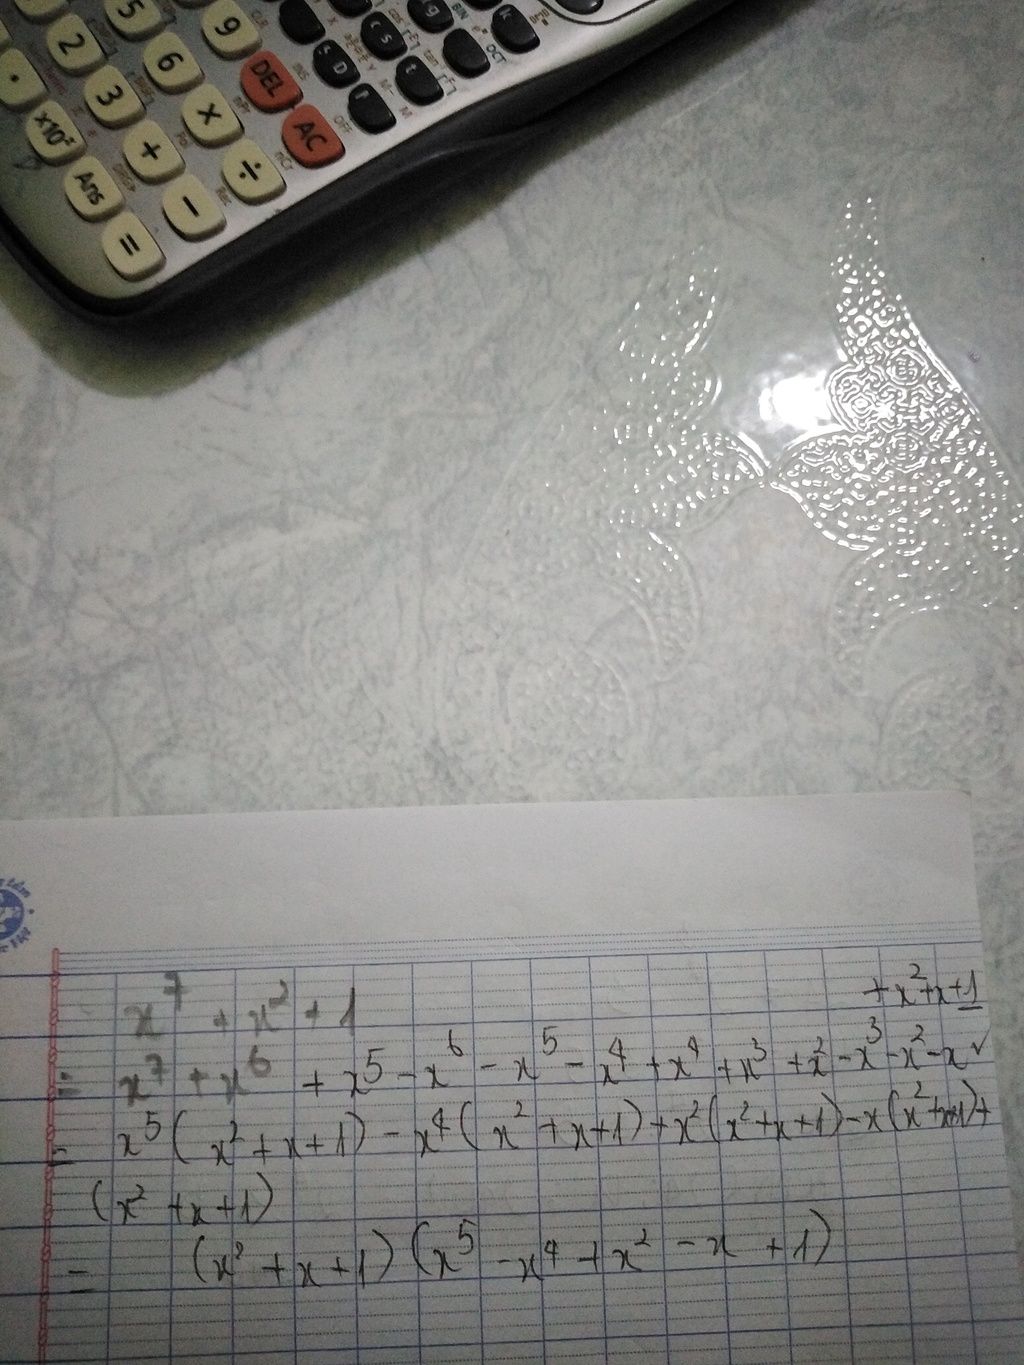 5
9
2
6
DEL
S D
CS
t
OCT
3
×
AC
OFF
·
×10ˣ
+
÷
Ans
−
=
x⁷ + x² + 1
+ x² + x + 1
= x⁷ + x⁶ + x⁵ − x⁶ − x⁵ − x⁴ + x⁴ + x³ + x² − x³ − x² − x ✓
= x⁵ ( x² + x + 1) − x⁴ ( x² + x + 1) + x² ( x² + x + 1) − x ( x² + x + 1) +
(x² + x + 1)
= (x² + x + 1) (x⁵ − x⁴ + x² − x + 1)